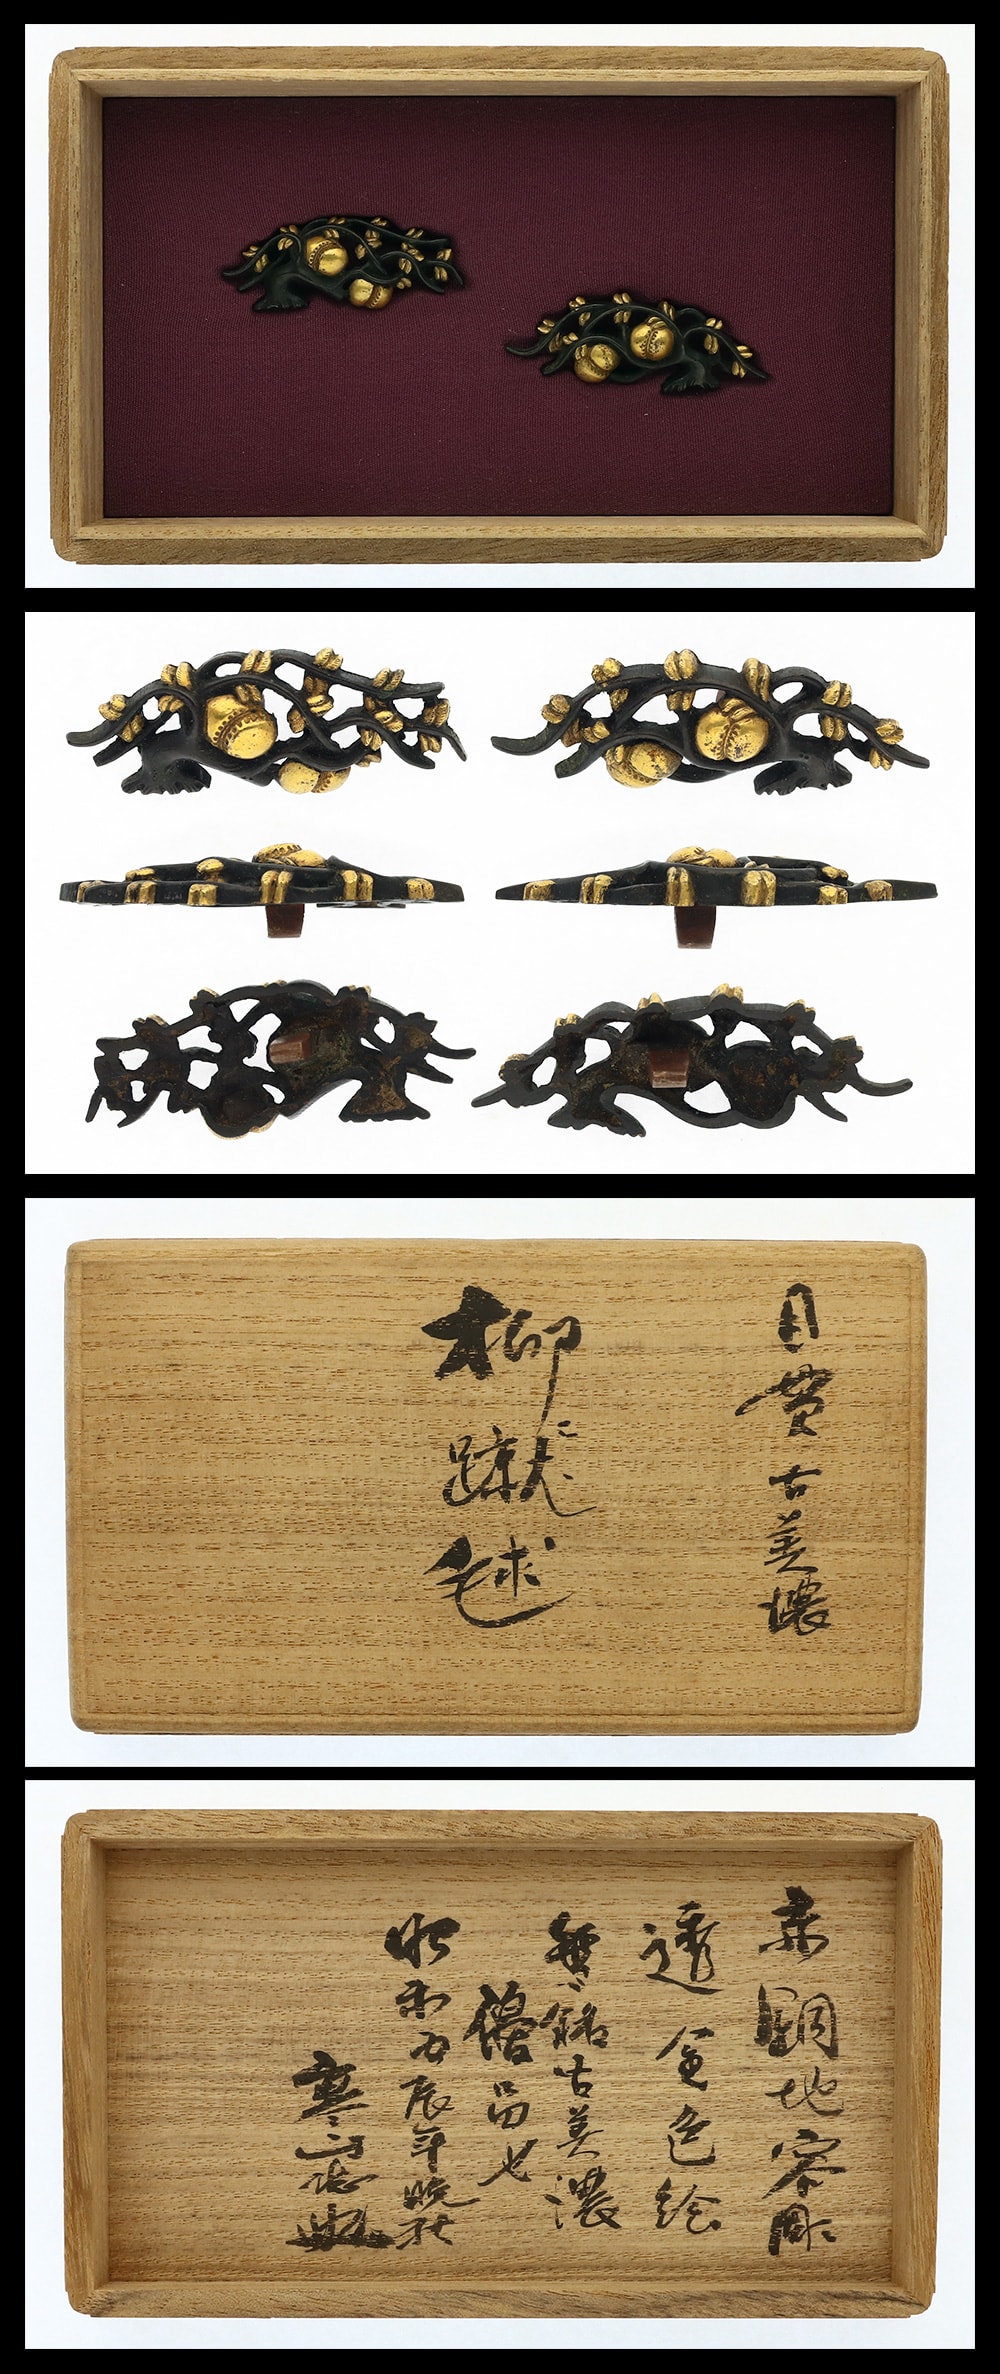 目貫古美濃
柳ニ
蹴
毬
赤銅地容彫
透金色絵
無銘古美濃
優品也
昭和丙辰年晩秋
寒山誌